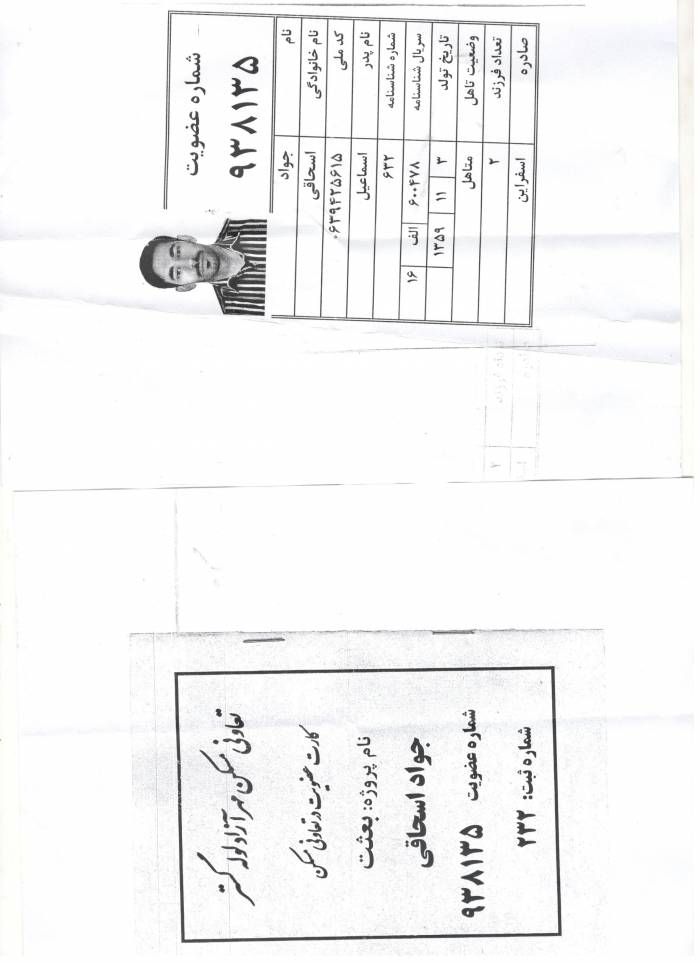 شماره عضویت
۹۳۸۱۳۵
نام جواد
نام خانوادگی اسحاقی
کد ملی ۰۶۳۹۴۲۵۶۱۵
نام پدر اسماعیل
شماره شناسنامه ۶۳۲
سریال شناسنامه ۶۰۰۴۷۸ الف ۱۶
تاریخ تولد ۳ ۱۱ ۱۳۵۹
وضعیت تاهل متاهل
تعداد فرزند ۲
صادره اسفراین
تعاونی مسکن مهر آزاد لوله گستر
کارت عضویت در تعاونی مسکن
نام پروژه: بعثت
جواد اسحاقی
شماره عضویت ۹۳۸۱۳۵
شماره ثبت: ۲۳۲